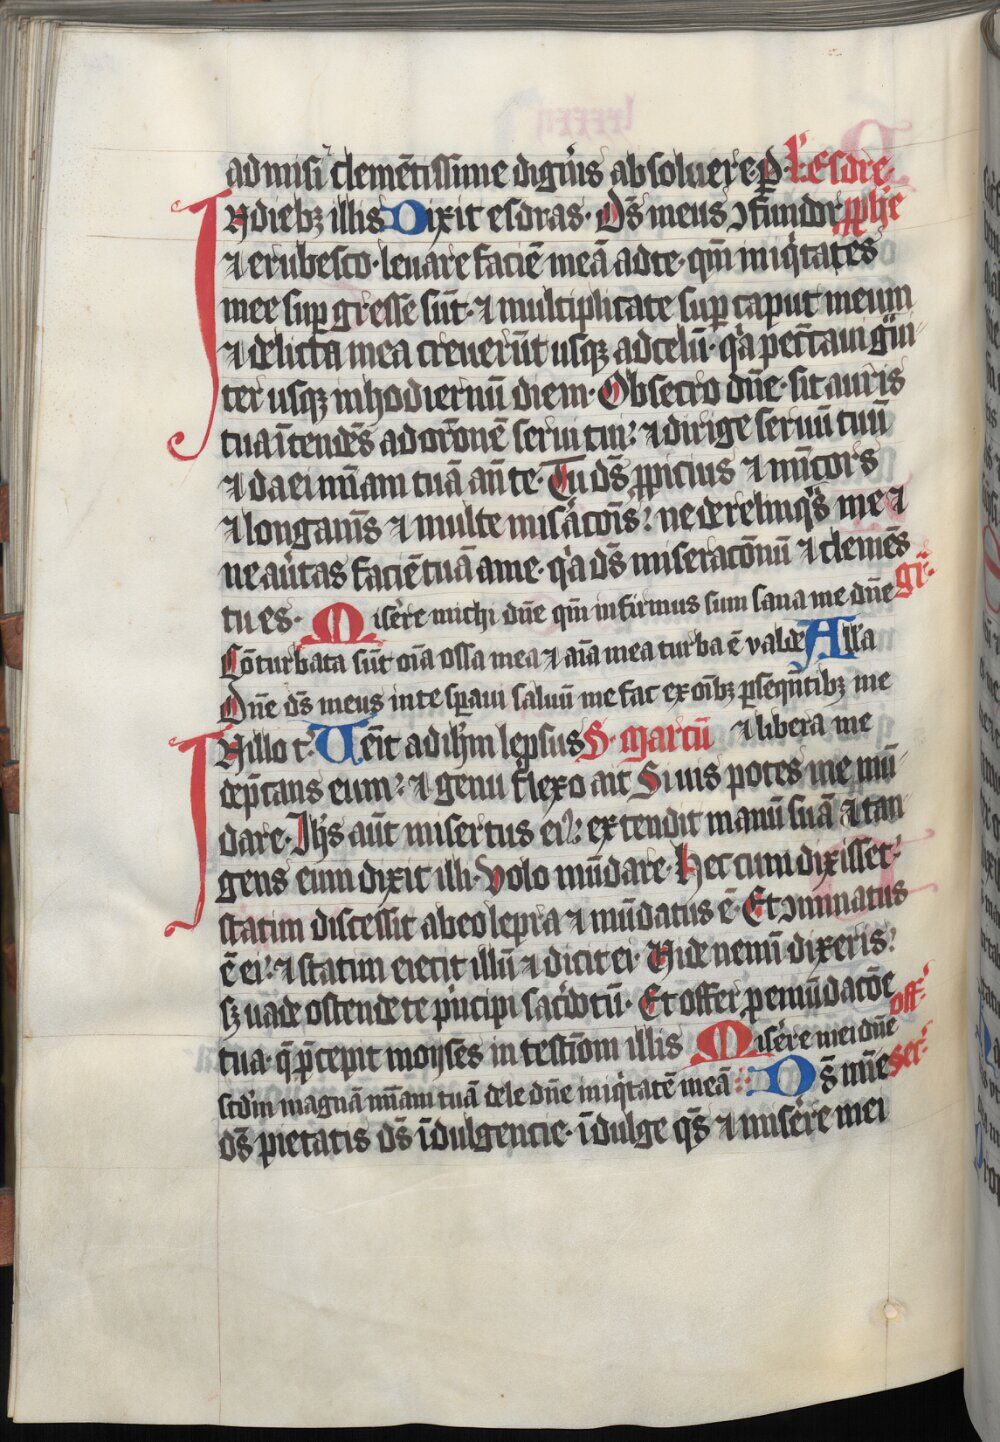 admisi clemētissime digneris absoluere. p̄. L' Esdre
In dieb; illis Dixit esdras. Ds̄ meus ꝯfundor pphe
⁊ erubesco. leuare faciē meā ad te. qm̄ iniq'tates
mee sup gresse sūt. ⁊ multiplicate sup caput meum
⁊ delicta mea creuerūt usq; ad celū. q'a peccaui g'ui-
ter usq; in hodiernū diem. Obsecro dn̄e. sit auris
tua ītendēs ad orōnē serui tui: ⁊ dirige seruū tuū
⁊ da ei mīam tuā an̄ te. Tu ds̄ ꝓpicius ⁊ mīcors
⁊ longanis ⁊ multe misacōis: ne derelinq's me ⁊
ne au'tas faciē tuā a me. q'a ds̄ miseracōnū ⁊ clemēs
tu es. Misere michi dn̄e qm̄ infirmus sum sana me dn̄e gr̄.
Cōturbata sūt oīa ossa mea ⁊ aīa mea turba ē valde Alla
Dn̄e ds̄ meus in te spaui saluū me fac ex oīb; pseqn̄tib; me
In illo t'. Uēit ad ihm̄ lepsus S. marcū ⁊ libera me
dep̄cans eum: ⁊ genu flexo ait Si uis potes me mū-
dare. Ihs̄ aūt misertus ei': extendit manū suā ⁊ tan-
gens eum dixit illi. Volo mūdare. Hec cum dixisset:
statim discessit ab eo lepra ⁊ mūdatus ē. Et ꝯminatus
ē ei: ⁊ statim eiecit illū ⁊ dicit ei. Vide nemī dixeris:
s; uade ostende te p'ncipi sac'dotū. Et offer p emūdacōe
tua. q̄ p̄cepit moyses in testīom illis Misere mei dn̄e off'.
scd'm magnā mīam tuā dele dn̄e iniq'tatē meā: Ds̄ mīe Secr'.
ds̄ pietatis ds̄ īdulgencie. īdulge qs̄ ⁊ misere mei